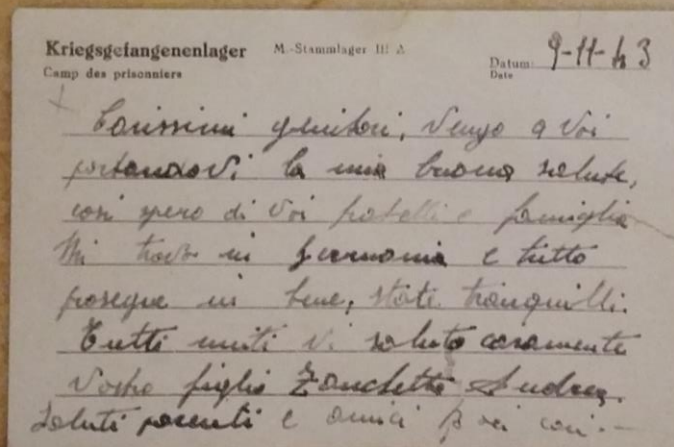 Kriegsgefangenenlager M.-Stammlager III A
Camp des prisonniers
Datum: 9-11-43
Date
Carissimi genitori, Vengo a Voi
portandovi la mia buona salute,
così spero di Voi fratelli e famiglia
Mi trovo in germania e tutto
prosegue in bene, state tranquilli.
Tutti uniti Vi saluto caramente
Vostro figlio Zanchetta Andrea.
Saluti parenti e amici